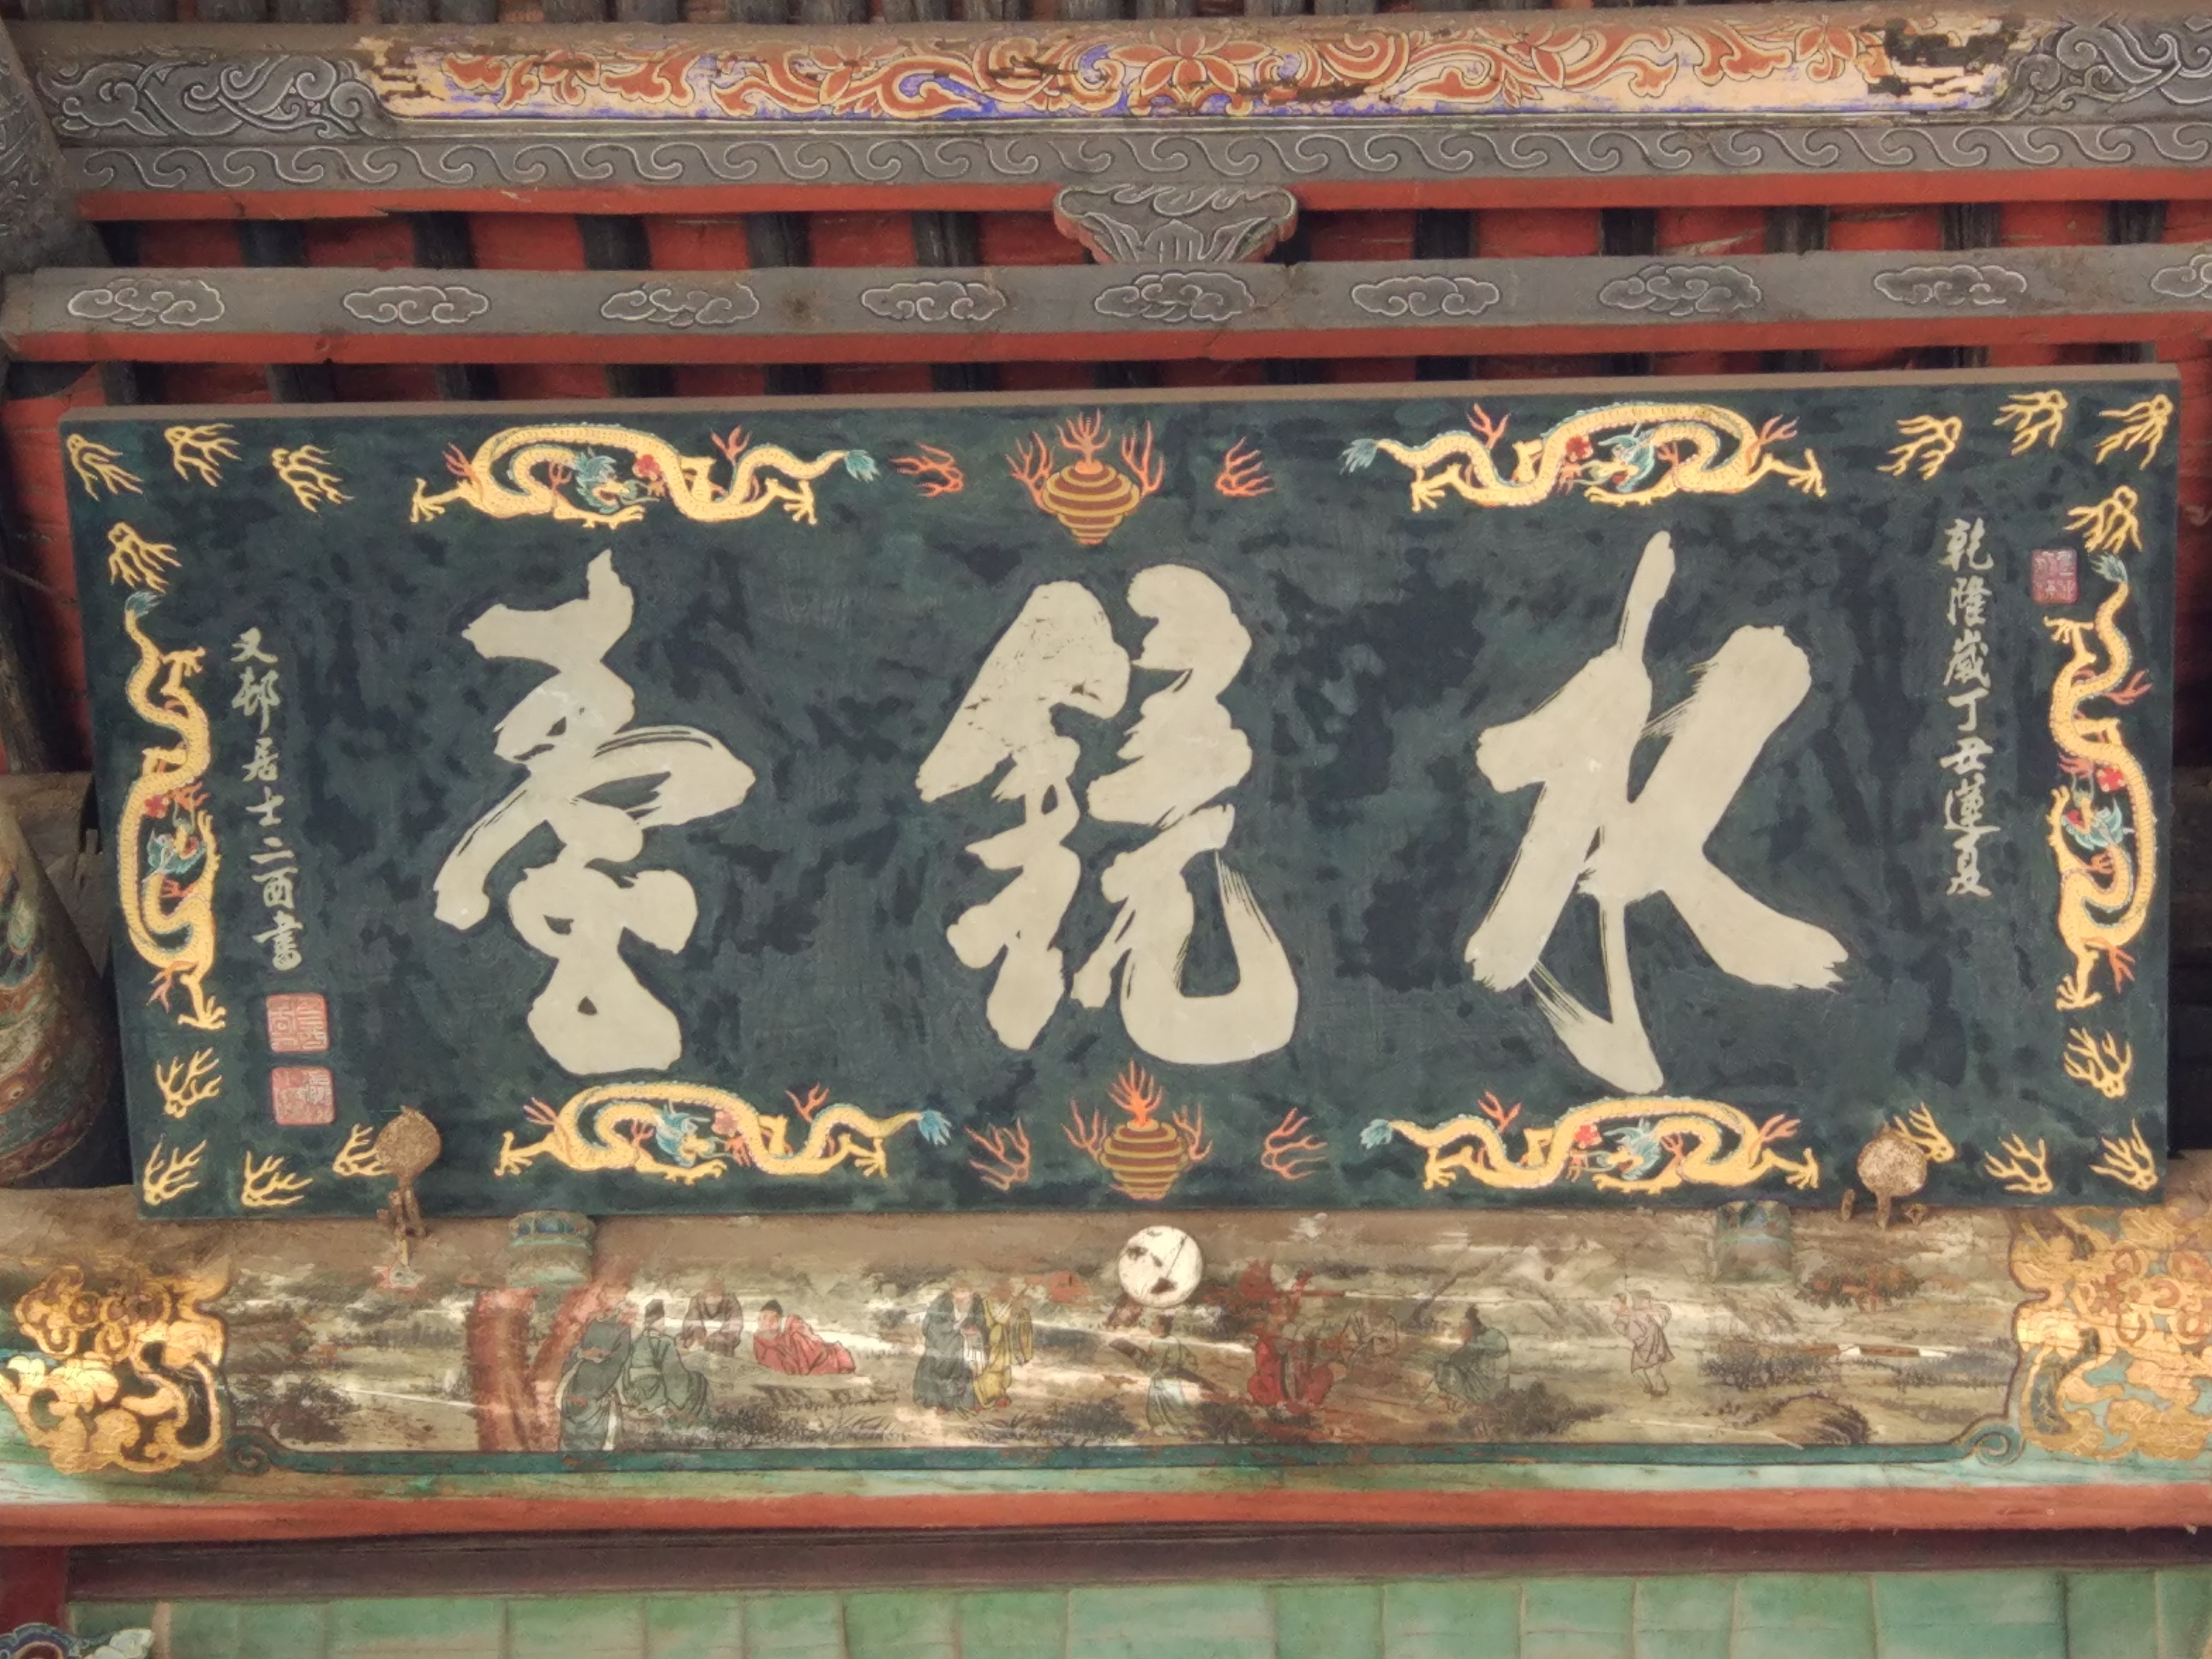 乾隆歲丁丑蓮夏
水鏡臺
又邨居士二酉書